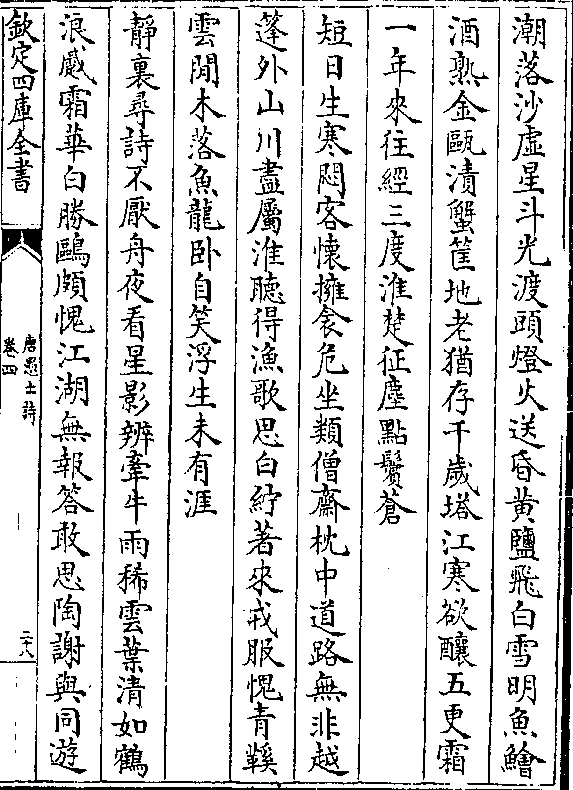 潮落沙虛星斗光渡頭燈火送昏黄鹽飛白雪明魚鱠
酒熟金甌漬蟹筐地老猶存千歲塔江寒欲釀五更霜
一年來往經三度淮楚征塵點鬢蒼
短日生寒悶客懷擁衾危坐類僧齋枕中道路無非越
篷外山川盡屬淮聴得漁歌思白紵著來戎服愧青鞵
雲閒木落魚龍卧自笑浮生未有涯
靜裏尋詩不厭舟夜看星影辨牽牛雨稀雲葉清如鶴
浪蹙霜華白勝鷗頗愧江湖無報答敢思陶謝與同遊
欽定四庫全書
唐愚士詩
卷四
二十八